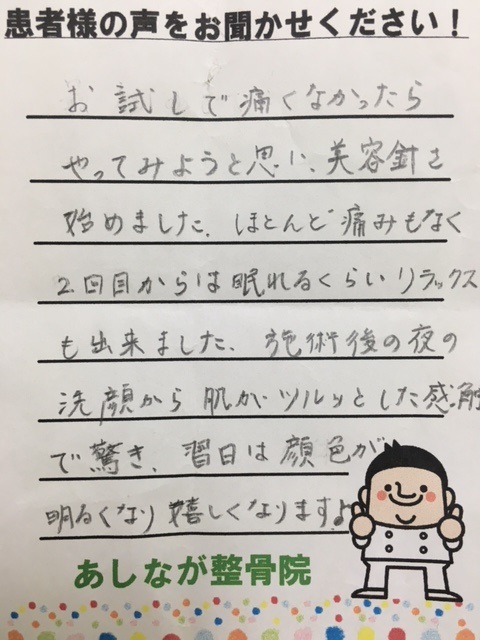 患者様の声をお聞かせください！
お試しで痛くなかったら
やってみようと思い、美容針を
始めました。ほとんど痛みもなく
2回目からは眠れるくらいリラックス
も出来ました。施術後の夜の
洗顔から肌がツルッとした感触
で驚き、習日は顔色が
明るくなり嬉しくなります♪
あしなが整骨院